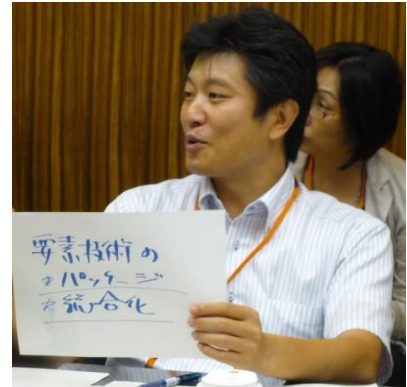 要素技術の
☆パッケージ
☆統合化